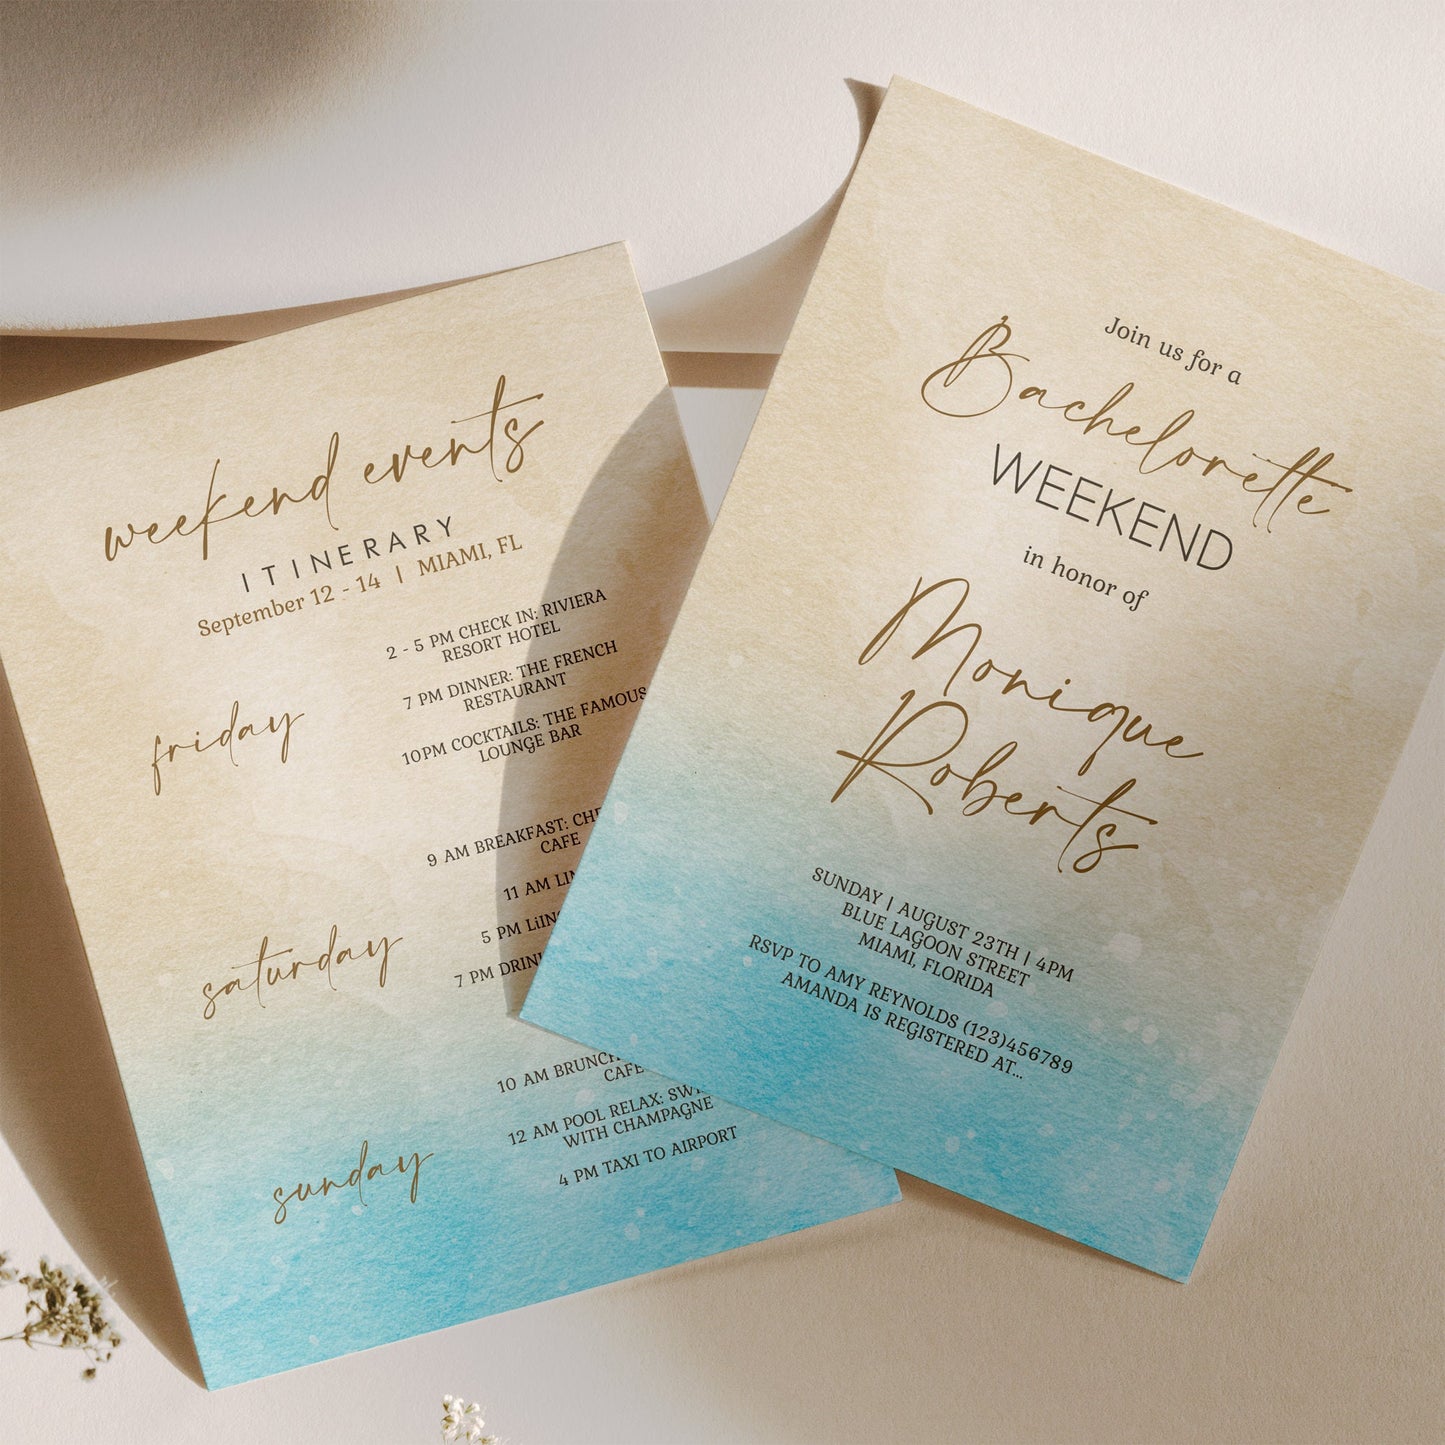 weekend events
ITINERARY
September 12 - 14 | MIAMI, FL
friday
2 - 5 PM CHECK IN: RIVIERA
RESORT HOTEL
7 PM DINNER: THE FRENCH
RESTAURANT
10PM COCKTAILS: THE FAMOUS
LOUNGE BAR
saturday
9 AM BREAKFAST:
CAFE
11 AM
5 PM
7 PM
sunday
10 AM BRUNCH
CAFE
12 AM POOL RELAX:
WITH CHAMPAGNE
4 PM TAXI TO AIRPORT
Join us for a
Bachelorette
WEEKEND
in honor of
Monique
Roberts
SUNDAY | AUGUST 23TH | 4PM
BLUE LAGOON STREET
MIAMI, FLORIDA
RSVP TO AMY REYNOLDS (123)456789
AMANDA IS REGISTERED AT...